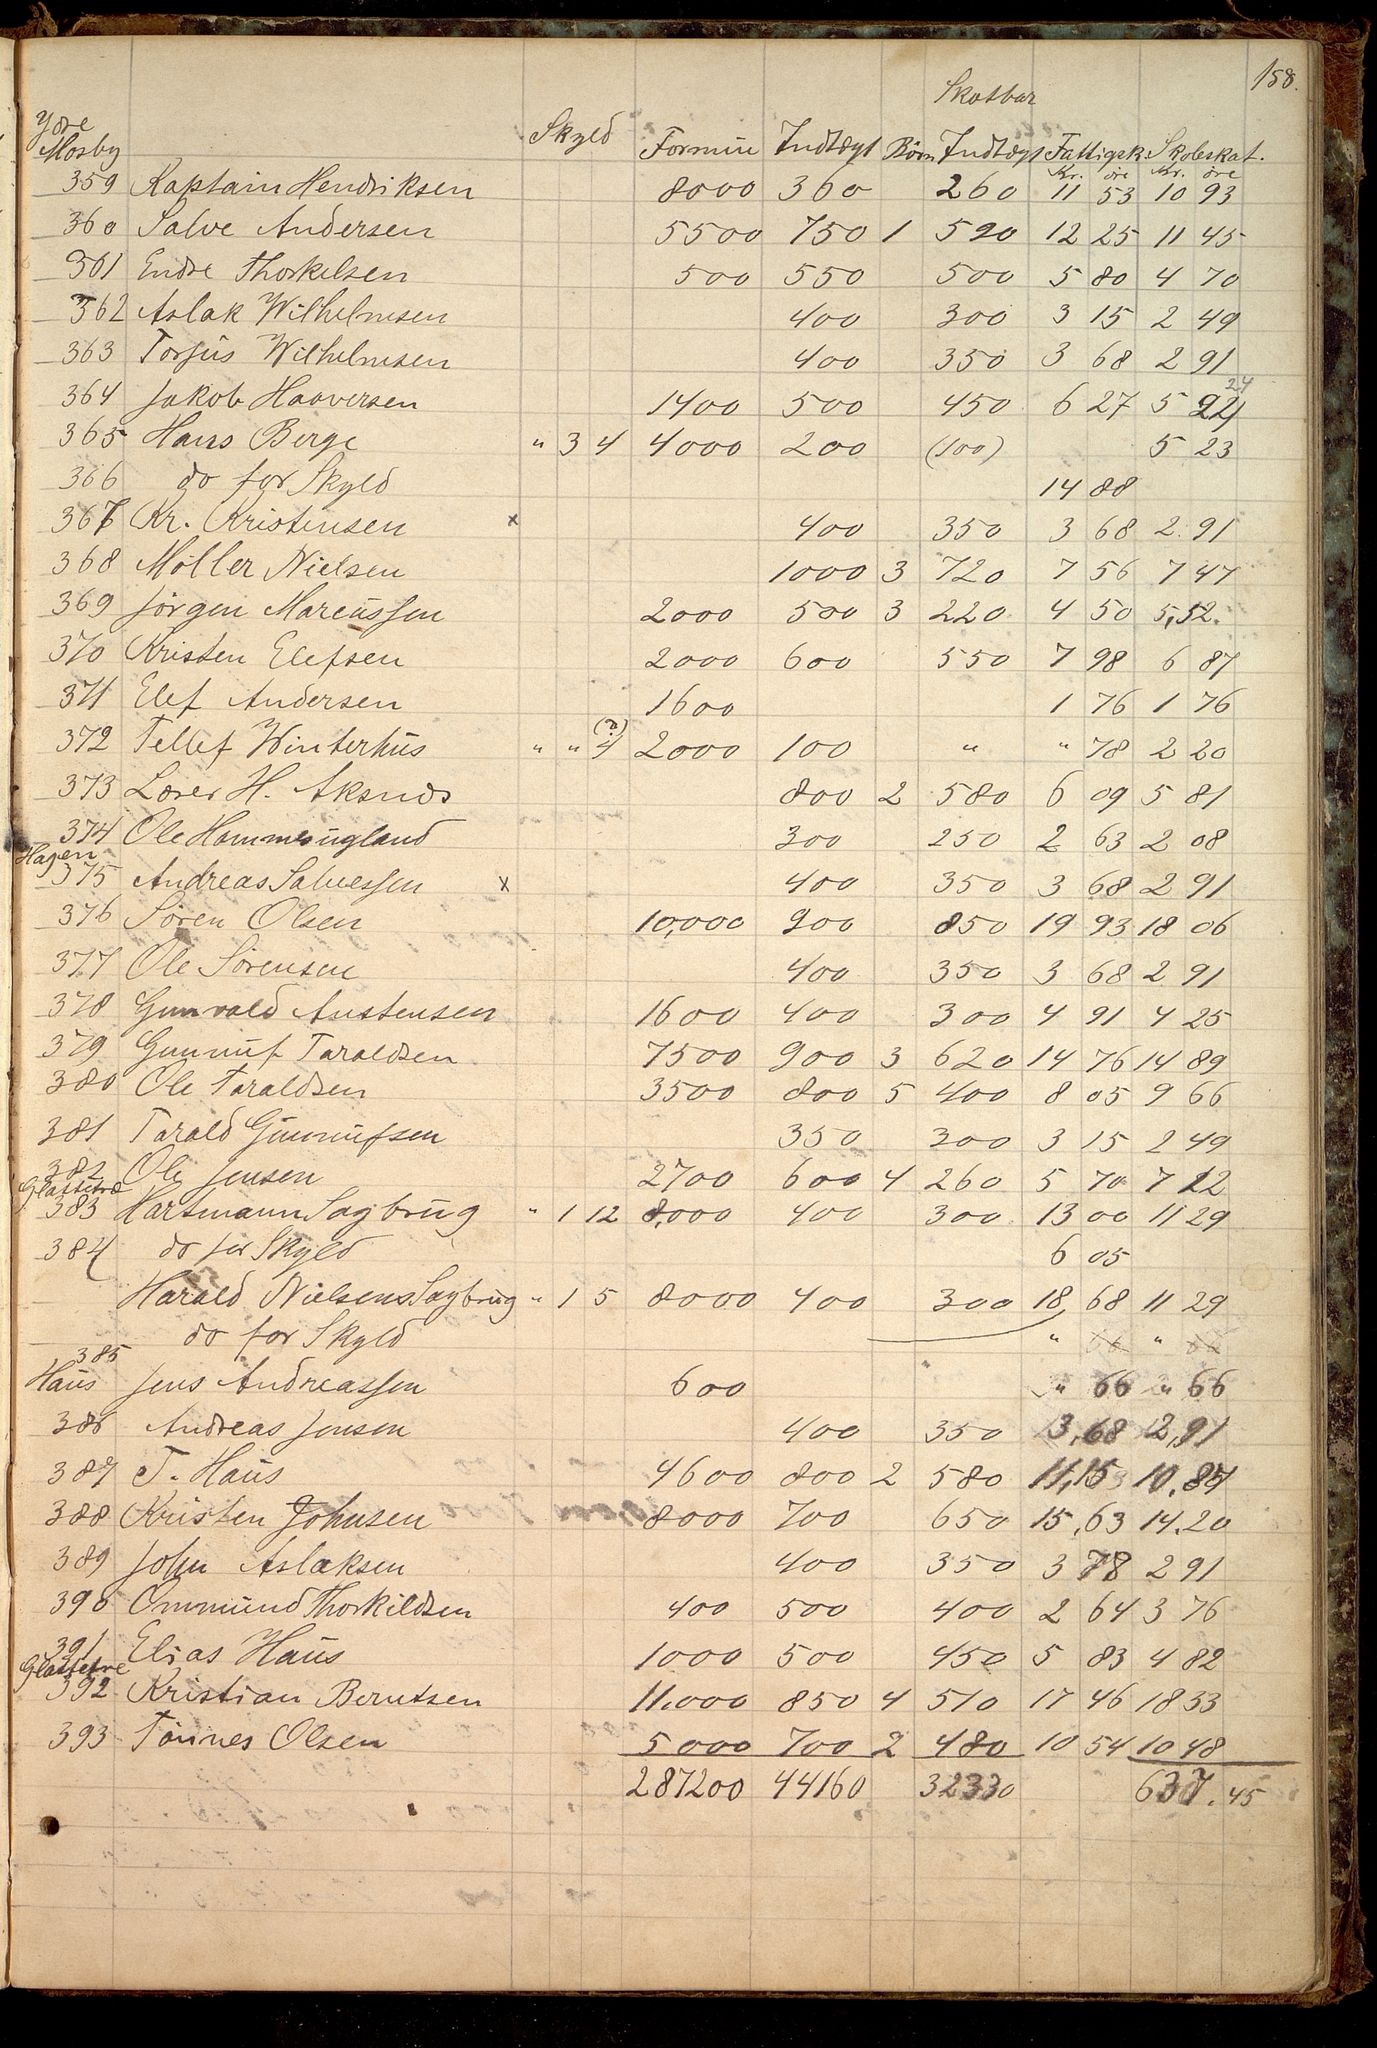 158.
Skatbar
Ydre
Mosby Skyld Formue Indtægt Börn Indtægt Fattigsk. Skoleskat.
Kr. öre Kr. öre
359 Kaptain Hendriksen 8000 360 260 11 53 10 93
360 Salve Andersen 5500 750 1 590 12 25 11 45
361 Endre Thorkelsen 500 550 500 5 80 4 70
362 Aslak Wilhelmsen 400 300 3 15 2 49
363 Torjus Wilhelmsen 400 350 3 68 2 91
364 Jakob Haaversen 1400 500 450 6 27 5 24
365 Hans Berge " 3 4 4000 200 (100) 5 23
366 do for Skyld 14 88
367 Kr. Kristensen x 400 350 3 68 2.91
368 Möller Nielsen 1000 3 720 7 56 7 47
369 Jörgen Marcussen 2000 500 3 220 4 50 5,52.
370 Kristen Elefsen 2000 600 550 7 98 6 87
371 Elef Andersen 1600 1 76 1 76
372 Tellef Winterhus " " 4 (?) 2000 100 " " 78 2 20
373 Lærer H. Aksnes 800 2 580 6 09 5 81
374 Ole Hommesugland 300 250 2 63 2 08
Hagen
375 Andreas Salvessen x 400 350 3 68 2 91
376 Sören Olsen 10,000 900 850 19 93 18 06
377 Ole Sörensen 400 350 3 68 2 91
378 Gunvald Austensen 1600 400 300 4 91 4 25
379 Gunnuf Taraldsen 7500 900 3 620 14 76 14 89
380 Ole Taraldsen 3500 800 5 400 8 05 9 66
381 Tarald Gunnufsen 350 300 3 15 2 49
382 Ole Jensen 2700 600 4 260 5 70 7 22
Glattetre
383 Hartmann Sagbrug " 1 12 8,000 400 300 13 00 11 29
384 do for Skyld 6 05
Harald Nielsens Sagbrug " 1 5 8000 400 300 18, 68 11 29
do for Skyld " 66 " 66
385
Haus Jens Andreassen 600 " 66 " 66
386 Andreas Jensen 400 350 3,68 2,91
387 T. Haus 4600 800 2 580 11,15 10,87
388 Kristen Johnsen 8000 700 650 15,63 14.20
389 John Aslaksen 400 350 3 78 2 91
390 Ommund Thorkildsen 400 500 400 2 64 3 76
391 Elias Haus 1000 500 450 5 83 4 82
Glattetre
392 Kristian Berntsen 11.000 850 4 510 17 46 18 33
393 Tönnes Olsen 5000 700 2 480 10 54 10 48
287200 44160 32330 637.45